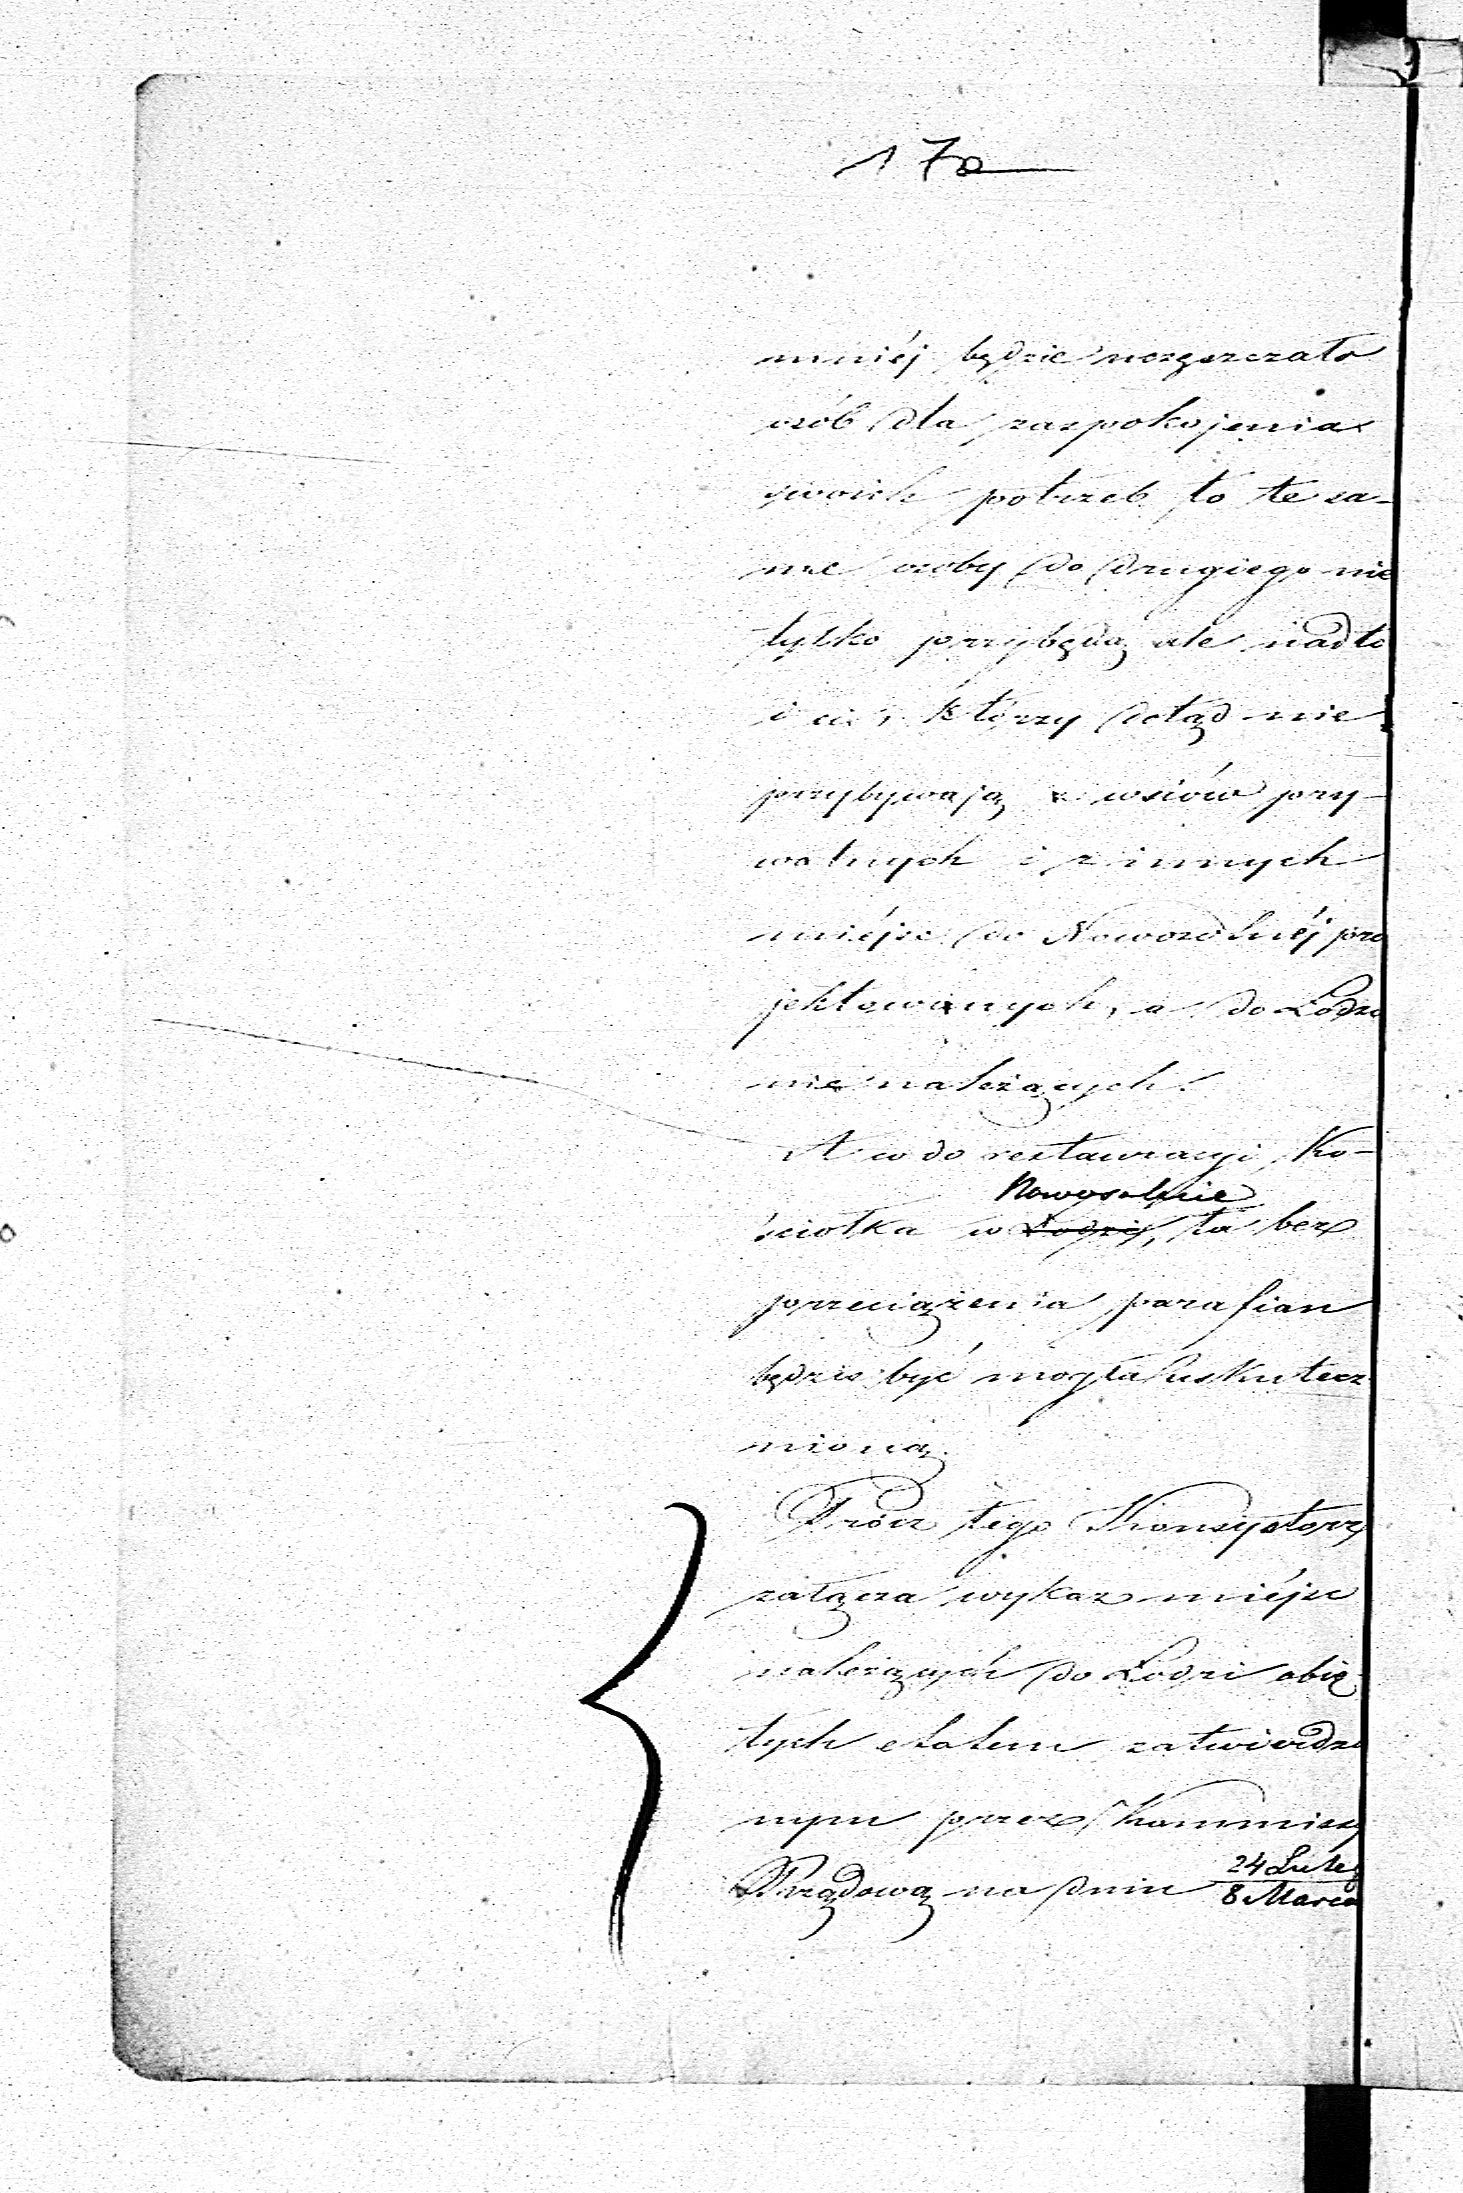 170
mniéj będzie uczęszczało
osób dla zaspokojenia
swoich potrzeb to te sa-
me osoby do drugiego nie
tylko przybędą ale nadto
i ci, którzy dotąd nie
przybywają z wsiów pry-
watnych i z innych
miéjsc do Nowosolnéj pro
jektowanych, a do Łodzi
nie należących.
A co do restauracyi Ko-
Nowosolnie
ściołka w Łodzi, ta bez
przeciążenia parafian
będzie być mogła uskutecz
nioną.
Prócz tego Konsystorz
załącza wykaz miéjsc
należących do Łodzi obię
tych etatem zatwierdzo
nym przez Kommissyę
Rządową na dniu 24 Luteg
8 Marca